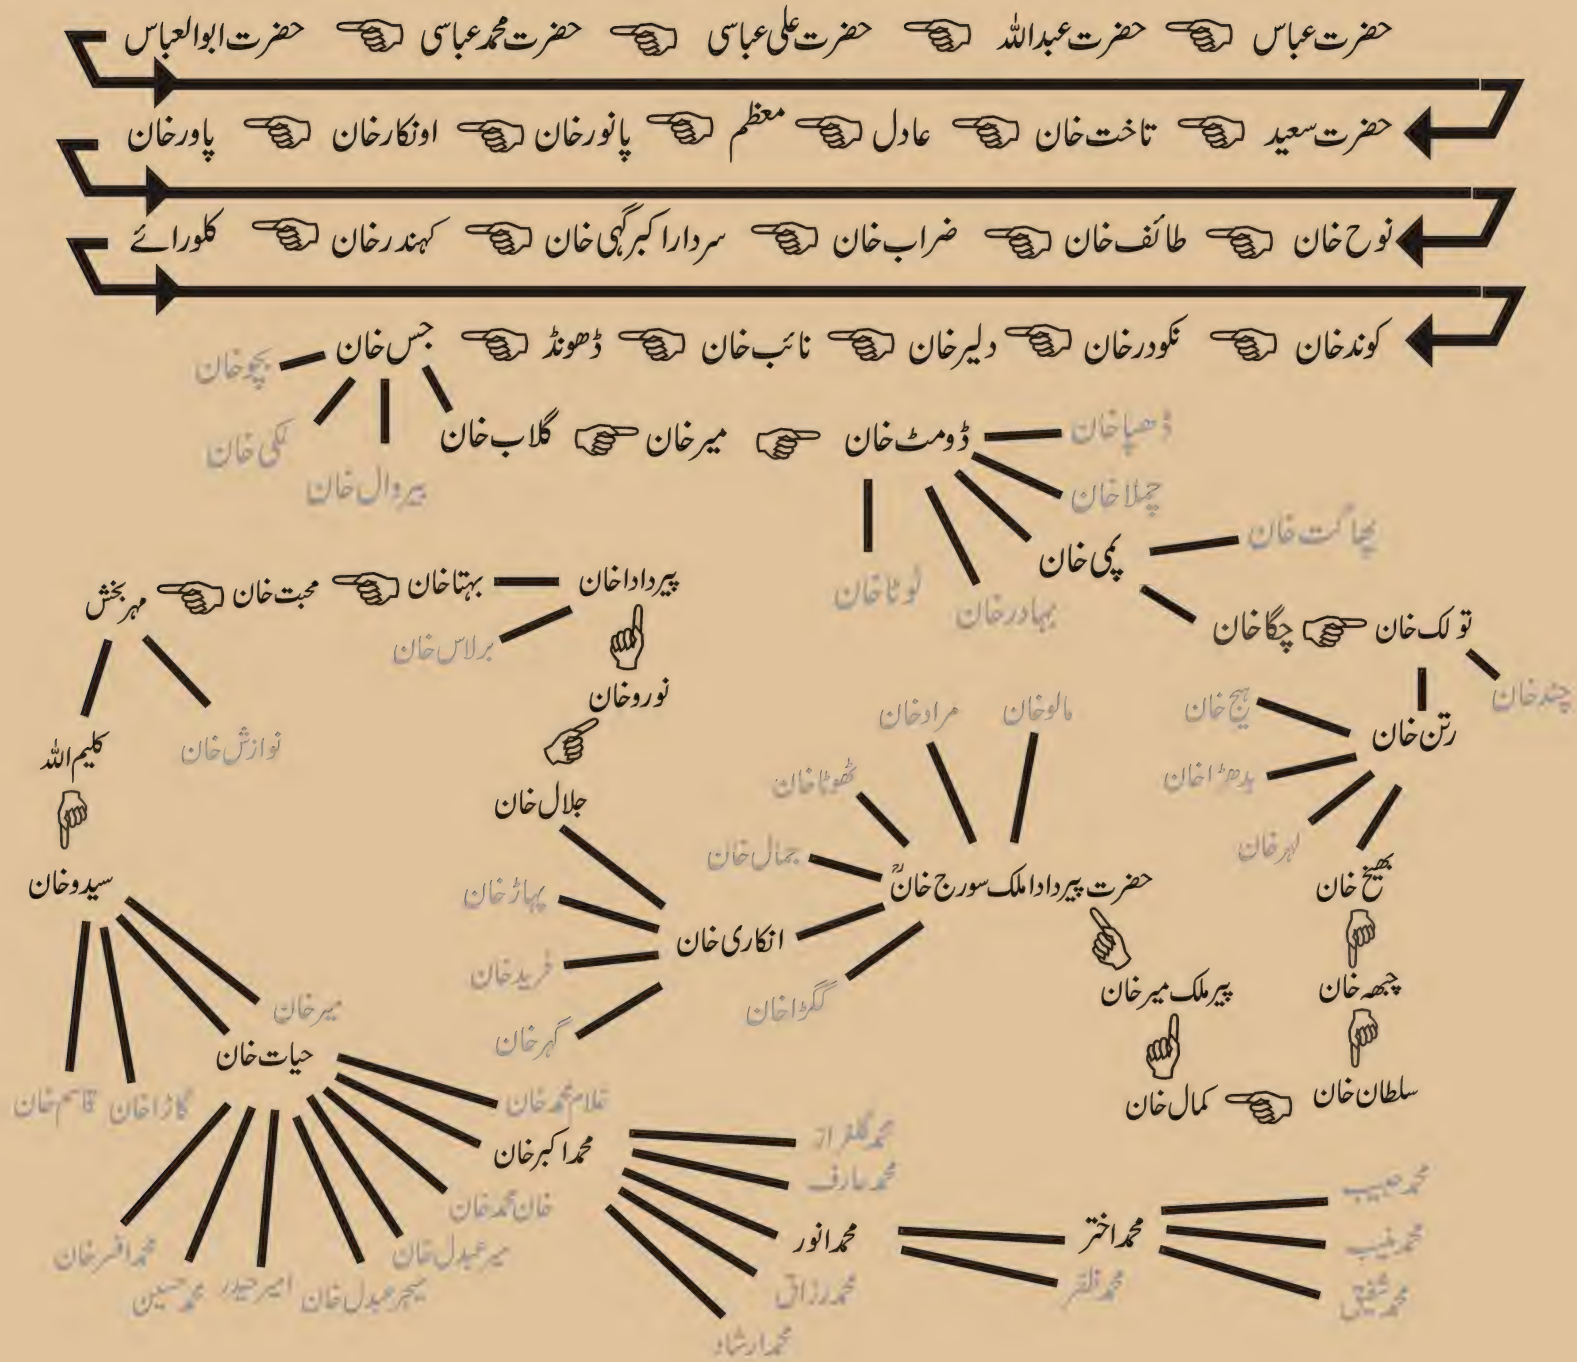 حضرت عباس حضرت عبداللہ حضرت علی عباسی حضرت محمد عباسی حضرت ابوالعباس
حضرت سعید تاخت خان عادل معظم پانور خان اونکار خان پاور خان
نوح خان طائف خان ضراب خان سردار اکبر گہی خان کہندر خان کلورائے
کوند خان نکودر خان دلیر خان نائب خان ڈھونڈ جس خان
بچو خان
لکی خان
بیروال خان
گلاب خان میر خان ڈومٹ خان
ڈھپا خان
چملا خان
پمی خان
بہادر خان
لوٹا خان
پھاگت خان
چگا خان تولک خان
چند خان
رتن خان
ہیچ خان
بدھڑا خان
لہر خان
بھیخ خان
چبھہ خان
سلطان خان
کمال خان
پیر ملک میر خان
حضرت پیر دادا ملک سورج خانؒ
مالو خان
مراد خان
ٹھوٹا خان
جمال خان
انکاری خان
گکڑا خان
جلال خان
پہاڑ خان
فرید خان
گہر خان
نورو خان
پیر دادا خان
برلاس خان
بہتا خان محبت خان مہر بخش
نوازش خان
کلیم اللہ
سیدو خان
میر خان
حیات خان
گاڑا خان
قاسم خان
غلام محمد خان
محمد اکبر خان
خان محمد خان
میر عبدل خان
میجر عبدل خان
امیر حیدر
محمد حسین
محمد افسر خان
محمد گلفراز
محمد عارف
محمد انور
محمد رزاق
محمد ارشاد
محمد اختر
محمد ظفر
محمد حبیب
محمد منیب
محمد شفیق